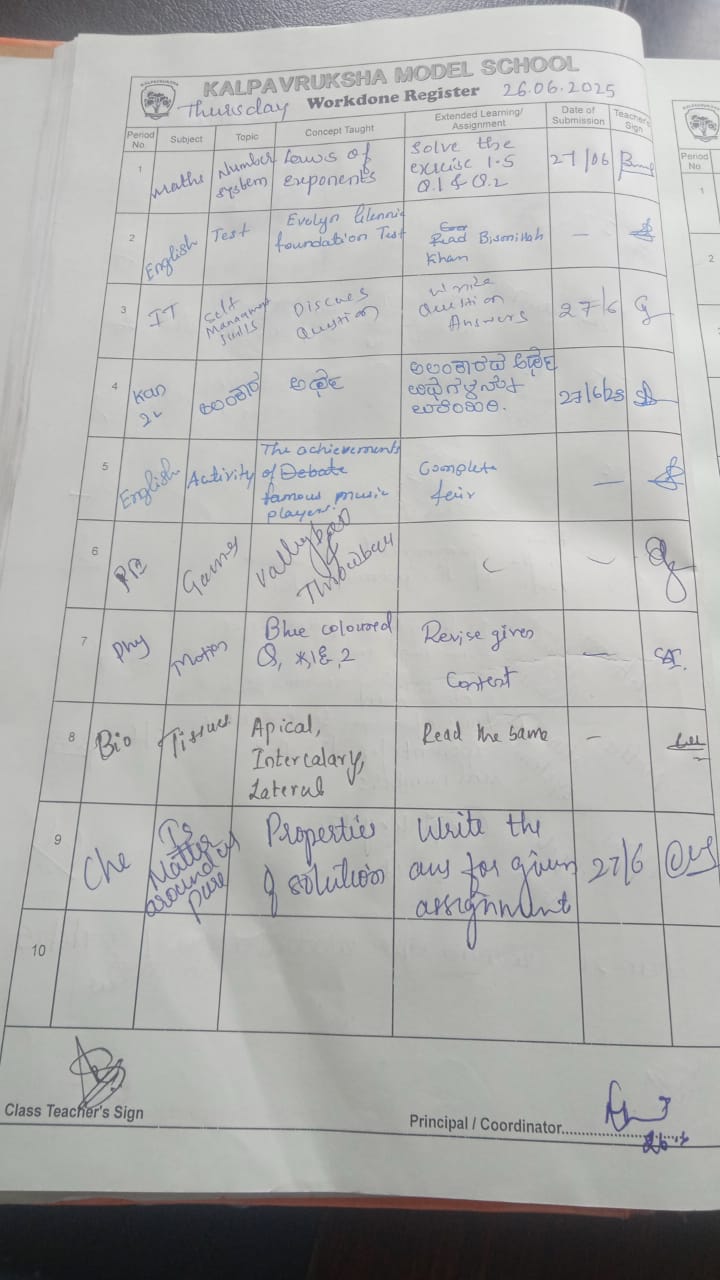 KALPAVRUKSHA MODEL SCHOOL
Thursday Workdone Register 26.06.2025
Period No. Subject Topic Concept Taught Extended Learning/ Assignment Date of Submission Teacher's Sign
1 Maths Number system Laws of exponents Solve the exercise 1.5 Q.1 & Q.2 27/06
2 English Test Evelyn Glennie foundation Test Read Bismillah Khan –
3 IT Self Management skills Discues Question Write Question Answers 27/6
4 Kan 2L ಅಲಂಕಾರ ಅಲಂಕಾರದ 27/6/25
5 English Activity The achievements of Debate famous music player. Complete fair –
6 PE Games Valleyball & Throwball
7 Phy Motion Blue coloured Q, *, 1 & 2 Revise given Content –
8 Bio Tissues Apical, Intercalary, Lateral Read the same –
9 Che Is Matter around us pure Properties of solution Write the ans for given assignment 27/6
10
Class Teacher's Sign
Principal / Coordinator
Period No
1
2